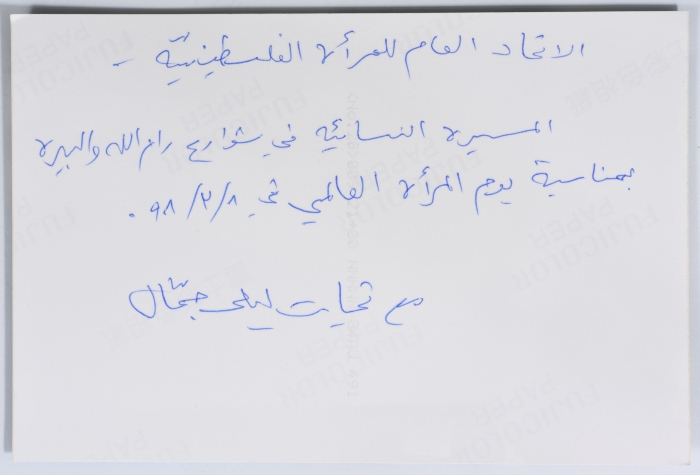 الاتحاد العام للمرأة الفلسطينية -
المسيرة النسائية في شوارع رام الله والبيرة
بمناسبة يوم المرأة العالمي في ٩٨/٣/٨ .
مع تحيات ليلى جمّال
FUJICOLOR
PAPER